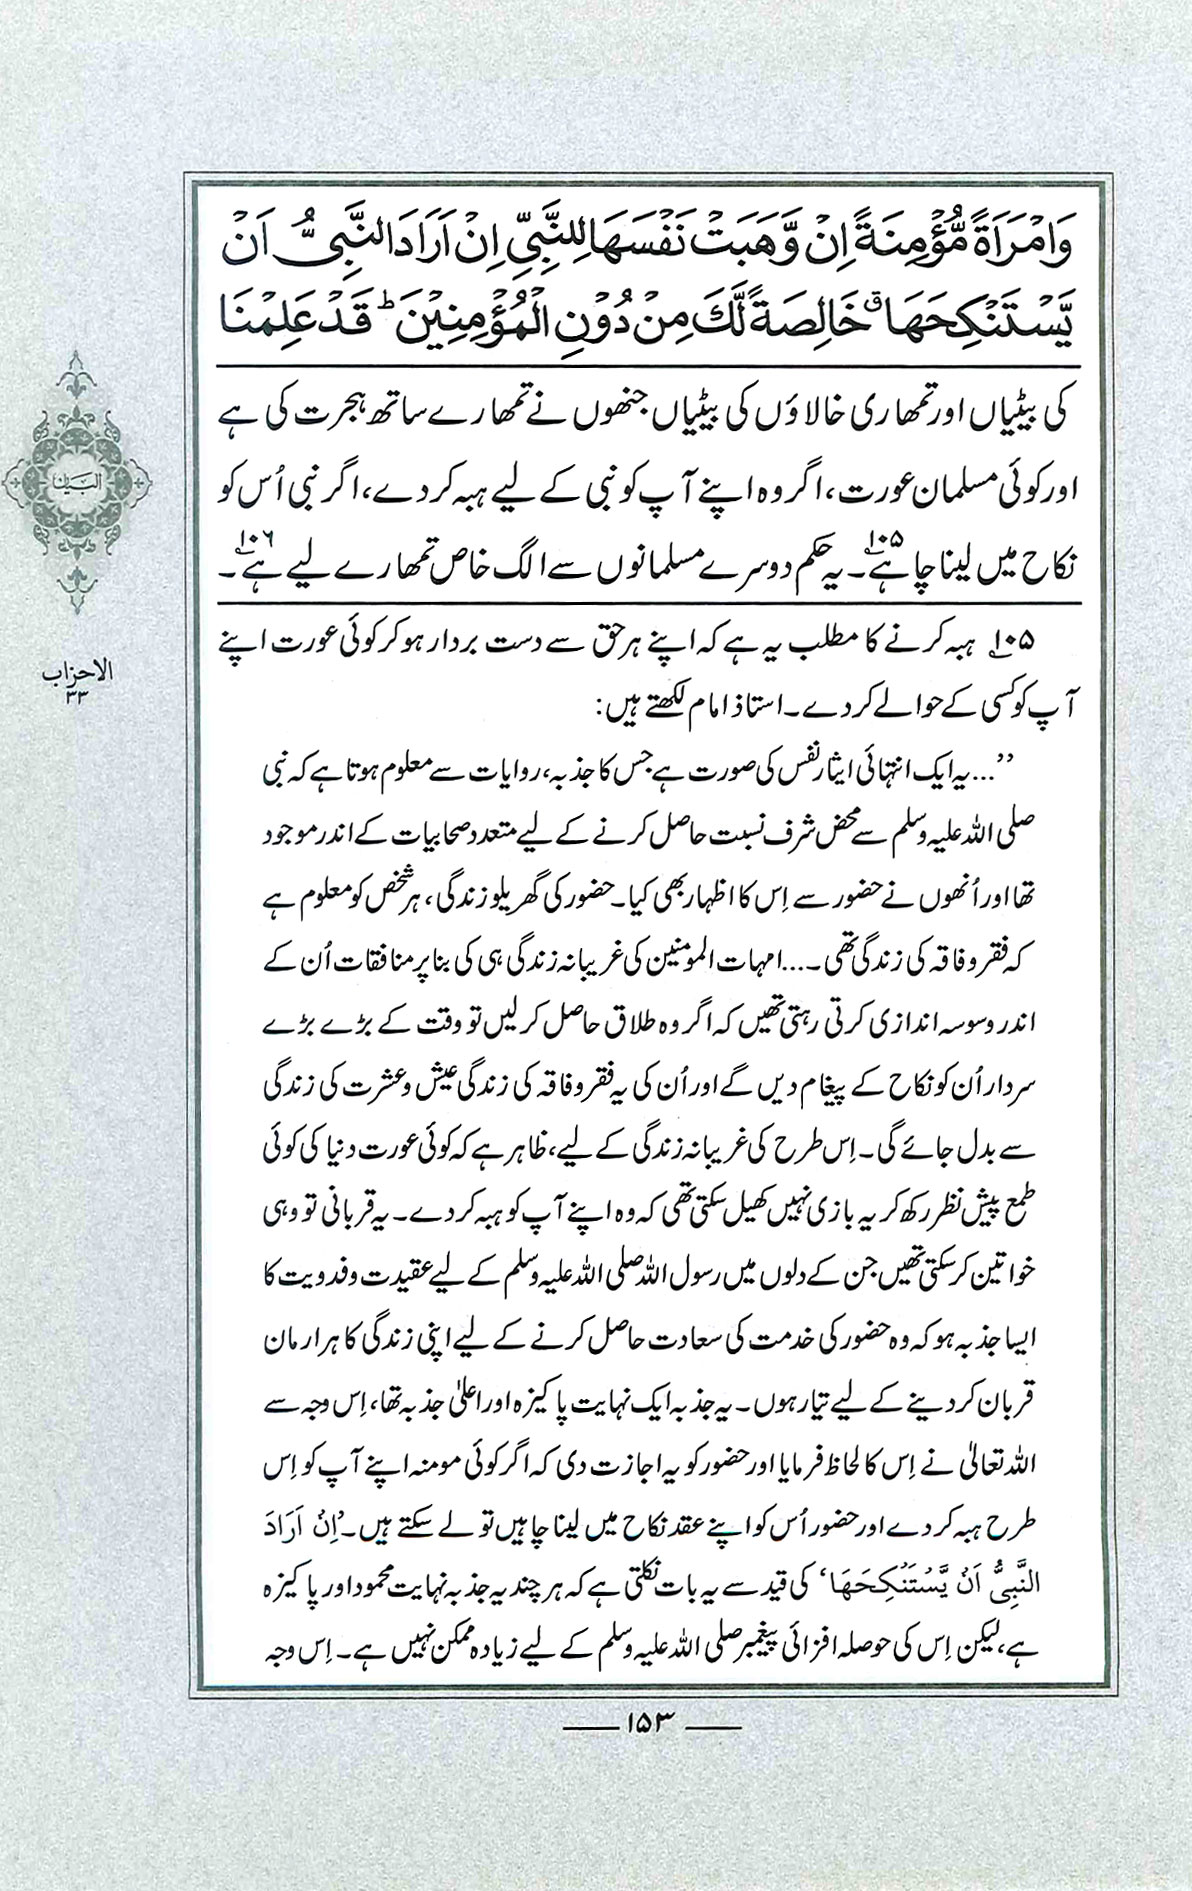 وَامْرَاَةً مُّؤْمِنَةً اِنْ وَّهَبَتْ نَفْسَهَا لِلنَّبِيِّ اِنْ اَرَادَ النَّبِيُّ اَنْ
يَّسْتَنْكِحَهَا ۤق خَالِصَةً لَّكَ مِنْ دُوْنِ الْمُؤْمِنِيْنَ ؕ قَدْ عَلِمْنَا
کی بیٹیاں اور تمھاری خالاؤں کی بیٹیاں جنھوں نے تمھارے ساتھ ہجرت کی ہے
اور کوئی مسلمان عورت، اگر وہ اپنے آپ کو نبی کے لیے ہبہ کر دے، اگر نبی اُس کو
نکاح میں لینا چاہے۱۰۵۔ یہ حکم دوسرے مسلمانوں سے الگ خاص تمھارے لیے ہے۱۰۶۔
۱۰۵ ہبہ کرنے کا مطلب یہ ہے کہ اپنے ہر حق سے دست بردار ہو کر کوئی عورت اپنے
آپ کو کسی کے حوالے کر دے۔ استاذ امام لکھتے ہیں:
’’...یہ ایک انتہائی ایثار نفس کی صورت ہے جس کا جذبہ، روایات سے معلوم ہوتا ہے کہ نبی
صلی اللہ علیہ وسلم سے محض شرف نسبت حاصل کرنے کے لیے متعدد صحابیات کے اندر موجود
تھا اور اُنھوں نے حضور سے اِس کا اظہار بھی کیا۔ حضور کی گھریلو زندگی، ہر شخص کو معلوم ہے
کہ فقر و فاقہ کی زندگی تھی۔... امہات المومنین کی غریبانہ زندگی ہی کی بنا پر منافقات اُن کے
اندر وسوسہ اندازی کرتی رہتی تھیں کہ اگر وہ طلاق حاصل کر لیں تو وقت کے بڑے بڑے
سردار اُن کو نکاح کے پیغام دیں گے اور اُن کی یہ فقر و فاقہ کی زندگی عیش و عشرت کی زندگی
سے بدل جائے گی۔ اِس طرح کی غریبانہ زندگی کے لیے، ظاہر ہے کہ کوئی عورت دنیا کی کوئی
طمع پیش نظر رکھ کر یہ بازی نہیں کھیل سکتی تھی کہ وہ اپنے آپ کو ہبہ کر دے۔ یہ قربانی تو وہی
خواتین کر سکتی تھیں جن کے دلوں میں رسول اللہ صلی اللہ علیہ وسلم کے لیے عقیدت و فدویت کا
ایسا جذبہ ہو کہ وہ حضور کی خدمت کی سعادت حاصل کرنے کے لیے اپنی زندگی کا ہر ارمان
قربان کر دینے کے لیے تیار ہوں۔ یہ جذبہ ایک نہایت پاکیزہ اور اعلیٰ جذبہ تھا، اِس وجہ سے
اللہ تعالیٰ نے اِس کا لحاظ فرمایا اور حضور کو یہ اجازت دی کہ اگر کوئی مومنہ اپنے آپ کو اِس
طرح ہبہ کر دے اور حضور اُس کو اپنے عقد نکاح میں لینا چاہیں تو لے سکتے ہیں۔ ’اِنْ اَرَادَ
النَّبِيُّ اَنْ يَّسْتَنْكِحَهَا‘ کی قید سے یہ بات نکلتی ہے کہ ہر چند یہ جذبہ نہایت محمود اور پاکیزہ
ہے، لیکن اِس کی حوصلہ افزائی پیغمبر صلی اللہ علیہ وسلم کے لیے زیادہ ممکن نہیں ہے۔ اِس وجہ
البیان
الاحزاب
۳۳
۱۵۳